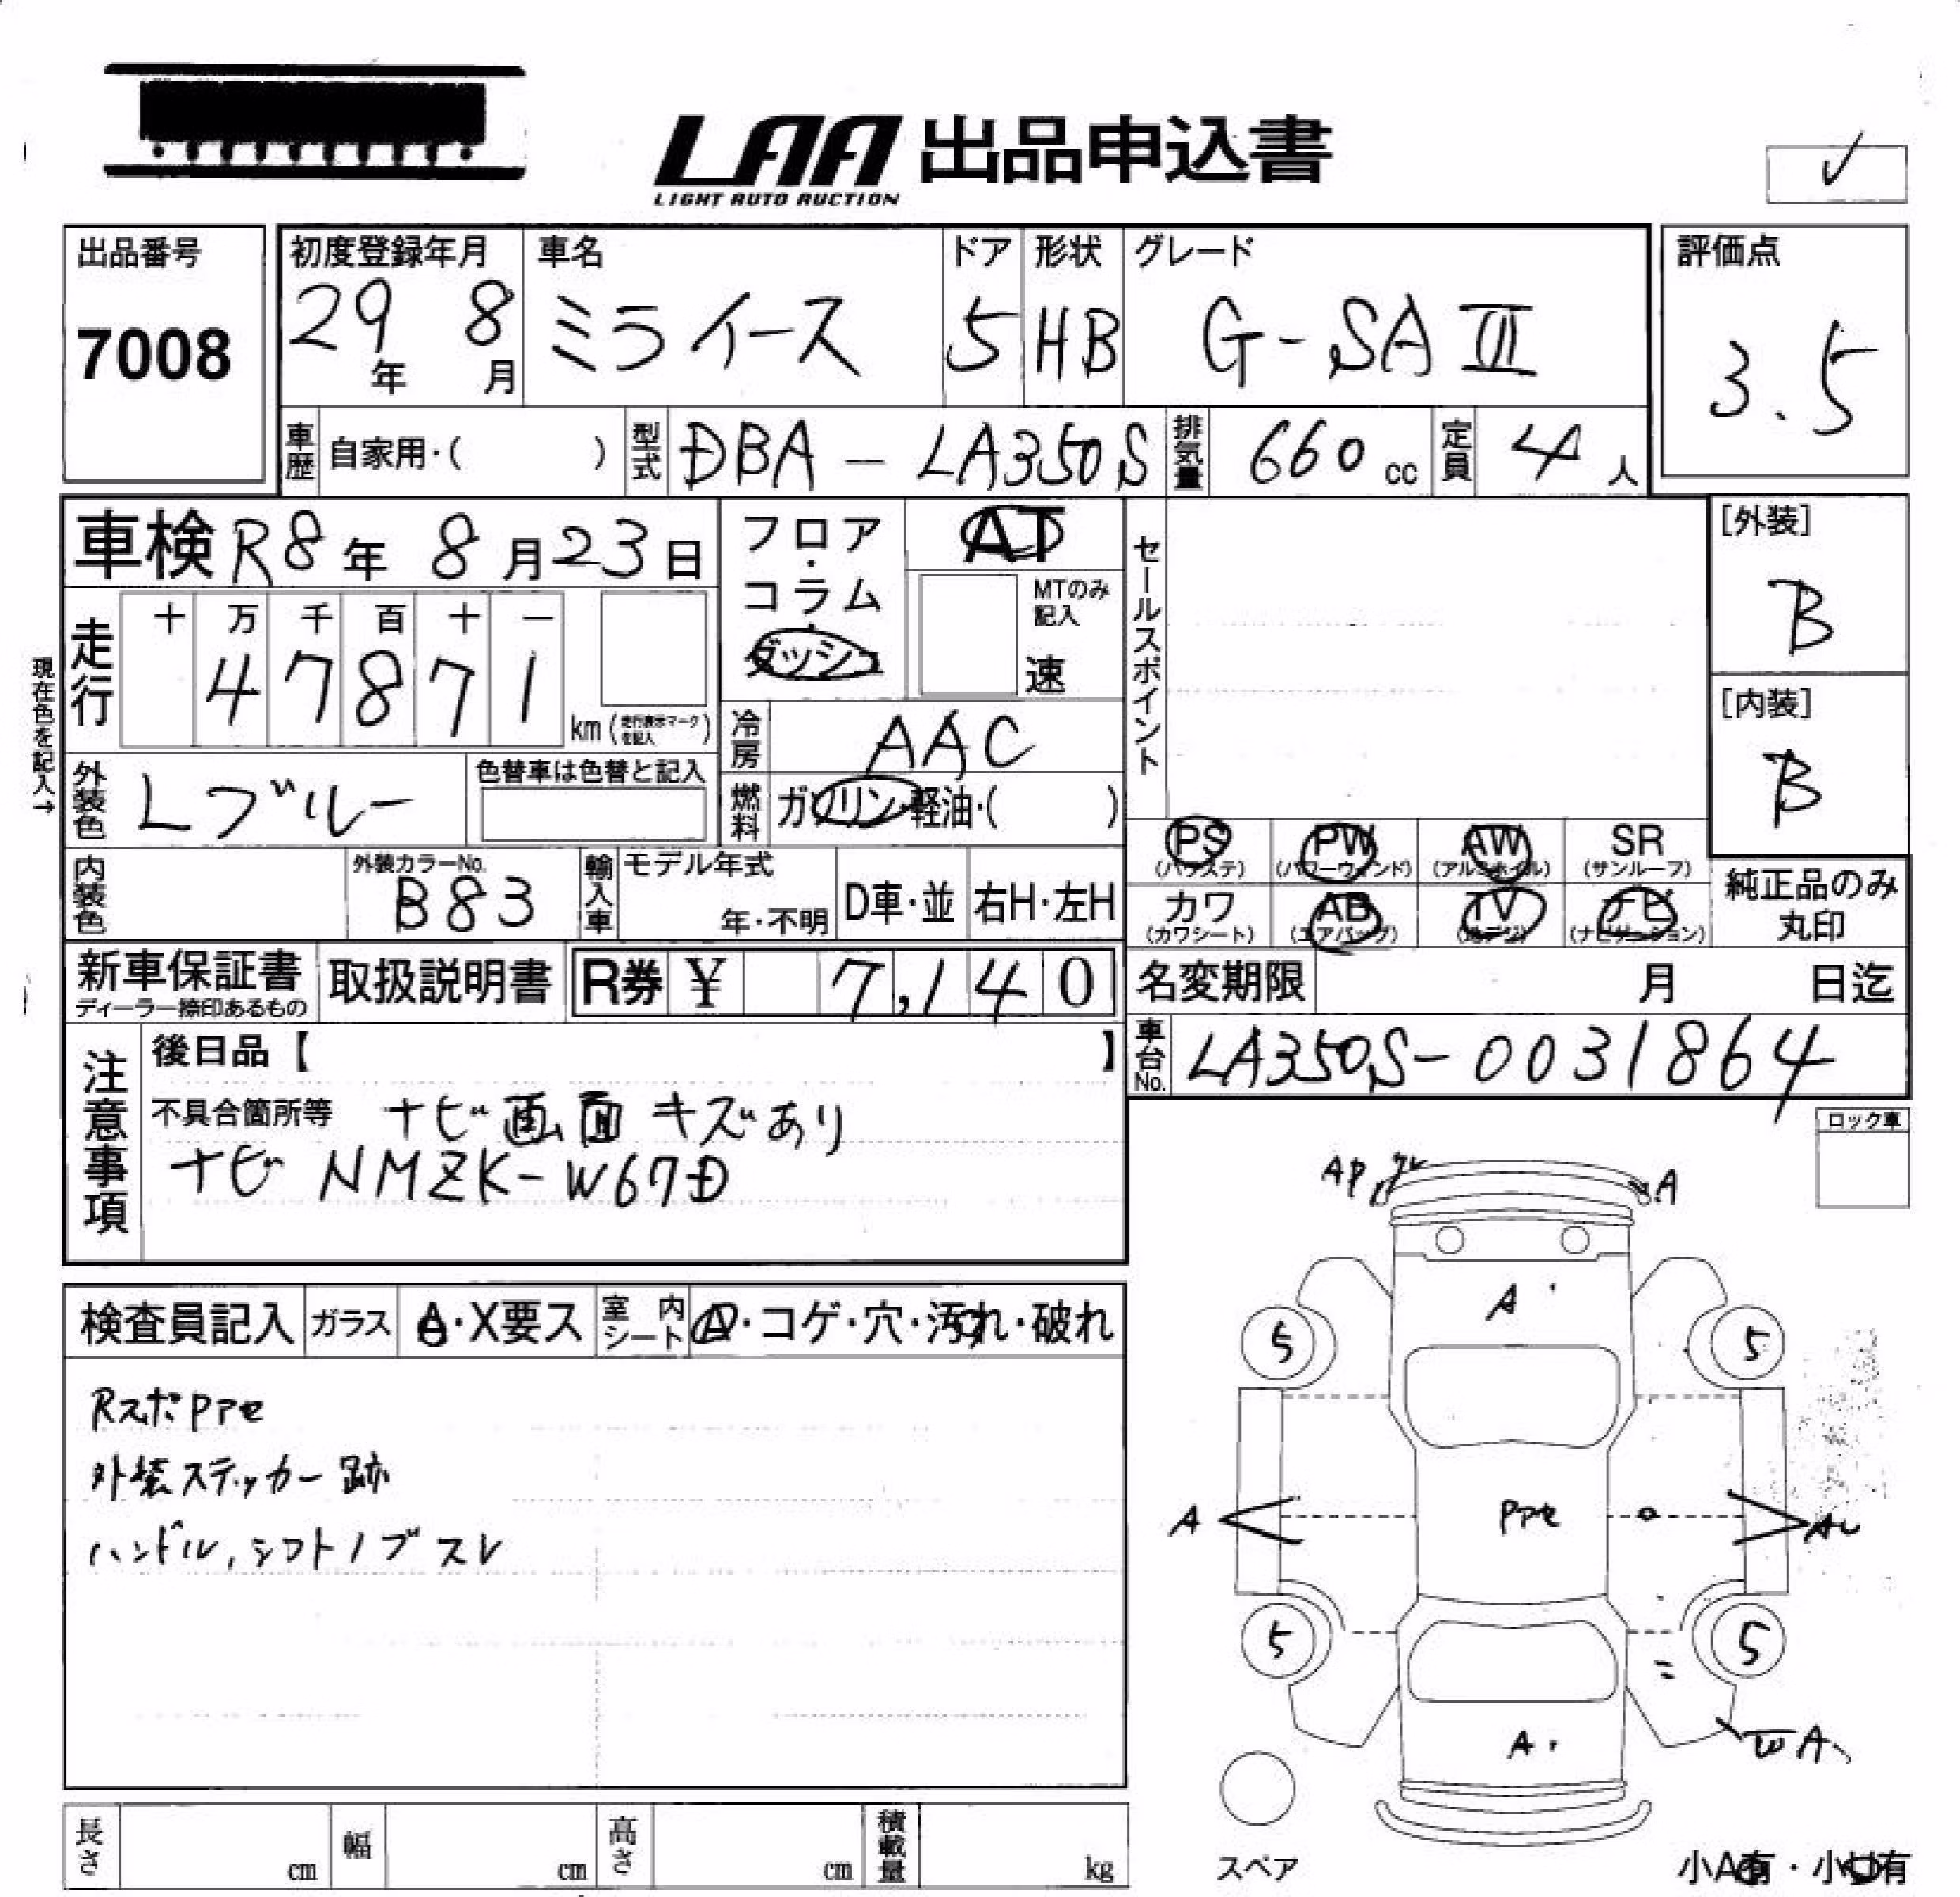 LAA 出品申込書
LIGHT AUTO AUCTION
✓
出品番号
7008
初度登録年月
29年 8月
車名
ミライース
ドア
5
形状
HB
グレード
G-SAⅢ
評価点
3.5
車歴 自家用・( )
型式 DBA-LA350S
排気量 660 cc
定員 4人
車検 R8年 8月23日
フロア・コラム・ダッシュ
AT
MTのみ記入
速
セールスポイント
[外装]
B
[内装]
B
現在色を記入→
走行
十 万 千 百 十 一
4 7 8 7 1
km (走行表示マークを記入)
冷房 AAC
外装色 Lブルー
色替車は色替と記入
燃料 ガソリン・軽油・( )
PS (パワステ)
PW (パワーウィンド)
AW (アルミホイル)
SR (サンルーフ)
カワ (カワシート)
AB (エアバッグ)
TV (地デジ)
ナビ (ナビゲーション)
純正品のみ丸印
内装色
外装カラーNo.
B83
輸入車
モデル年式
年・不明
D車・並
右H・左H
新車保証書
ディーラー捺印あるもの
取扱説明書
R券 ¥ 7,140
名変期限 月 日迄
車台No. LA350S-0031864
注意事項
後日品【 】
不具合箇所等 ナビ画面キズあり
ナビ NMZK-W67D
ロック車
検査員記入
ガラス A・X要ス
室内シート A・コゲ・穴・汚れ・破れ
Rスポ PPセ
外装ステッカー跡
ハンドル,シフトノブスレ
AP
A
A
5
5
A
PPセ
AU
5
5
A
スペア
小A有・小U有
長さ cm
幅 cm
高さ cm
積載量 kg